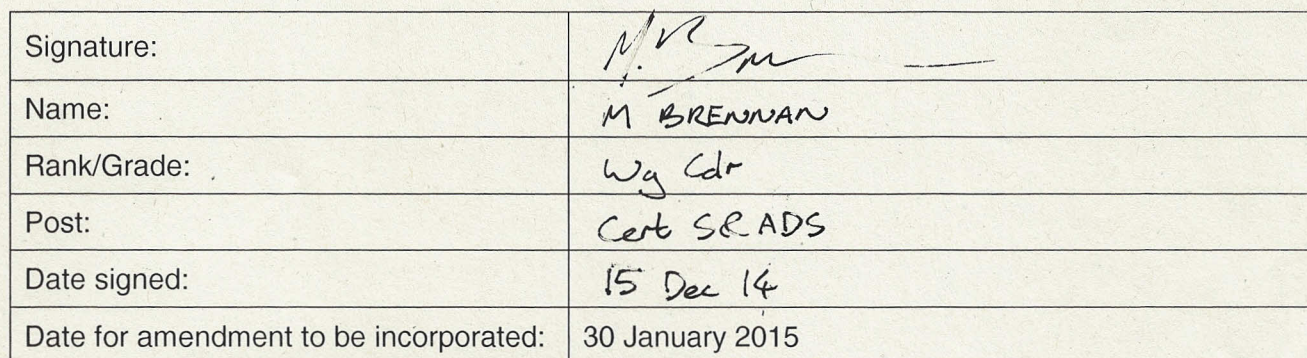 Signature: M. Bren
Name: M BRENNAN
Rank/Grade: Wg Cdr
Post: Cert S&ADS
Date signed: 15 Dec 14
Date for amendment to be incorporated: 30 January 2015